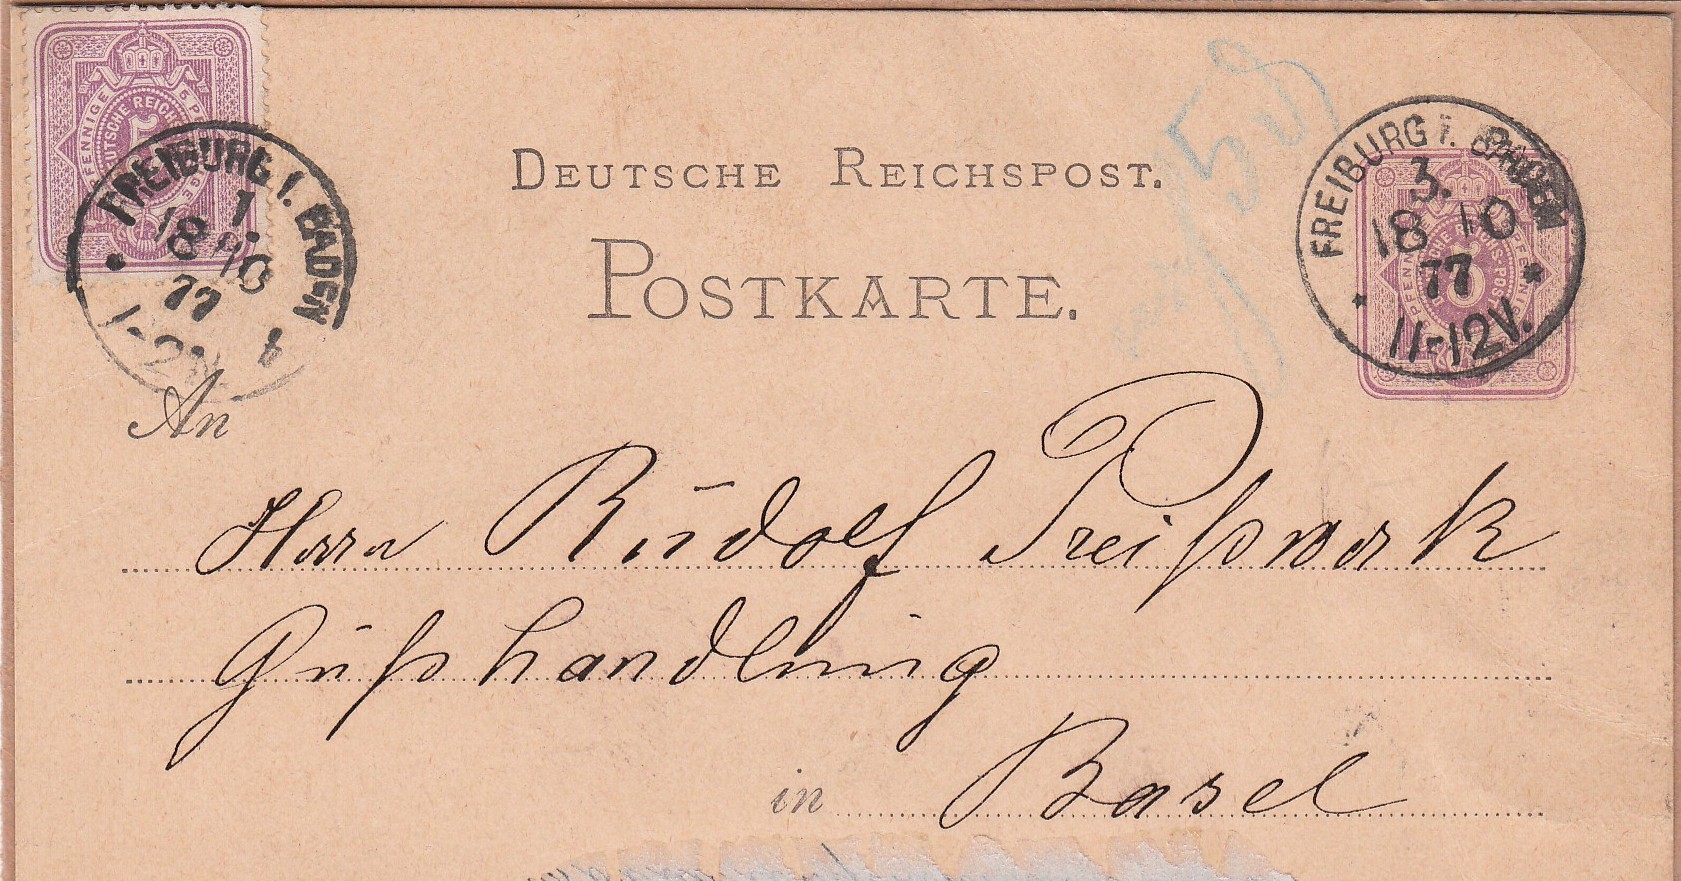 5 PFENNIGE
DEUTSCHE REICHS
5
FREIBURG I. BADEN
1.
18 10
77
1-2
4
DEUTSCHE REICHSPOST.
POSTKARTE.
FREIBURG I. BADEN
3.
18 10
77
* 11-12V. *
An
Herrn Rudolf Preißwerk
Gußhandlung
in Basel